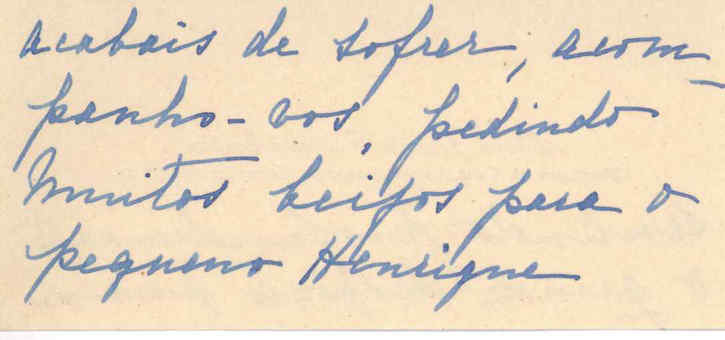 acabais de sofrer, acom-
panho-vos, pedindo
Muitos beijos para o
pequeno Henrique